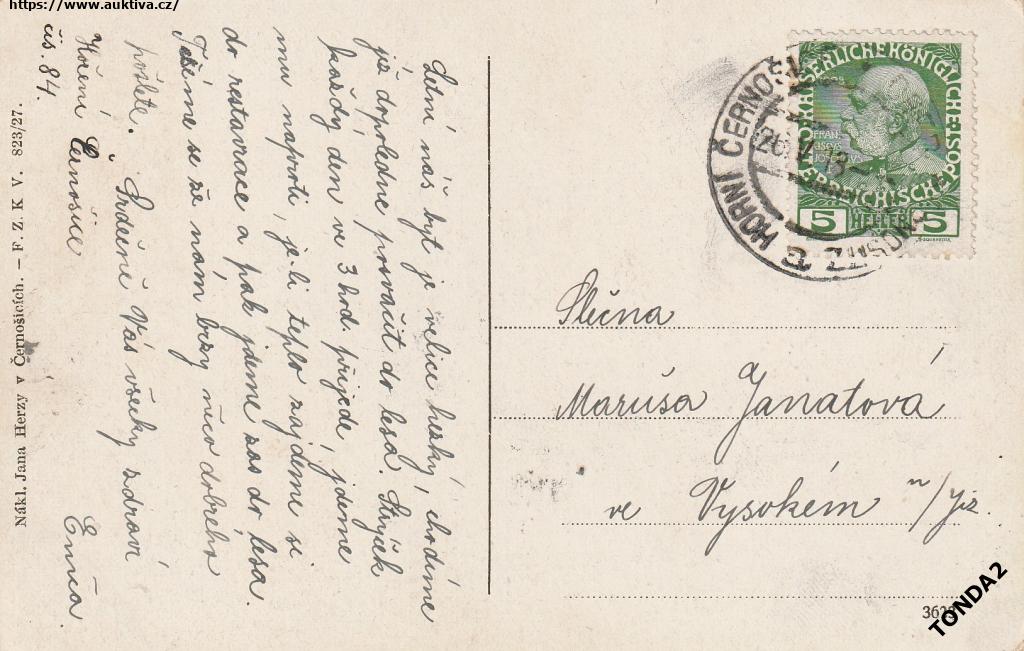 https://www.auktiva.cz/
Letní náš byt je velice hezký, chodíme
již dopoledne provádět do lesa. Strýček
každý den ve 3 hod. přijede, jdeme
mu naproti, je-li teplo zajdeme si
do restaurace a pak jdeme zas do lesa.
Těšíme se že nám brzy něco dobrého
pošlete. Srdečně Vás všecky zdraví
Ema
Horní Černošice
čís. 84.
Nákl. Jana Herzy v Černošicích. — F. Z. K V. 823/27.
KAISERLICHE KÖNIGLICHE
ÖSTERREICHISCHE POST
FRANZ
JOSEPH
5 HELLER 5
HORNÍ ČERNOŠICE
Slečna
Maruša Janatová
ve Vysokém n/Jiz.
TONDA2